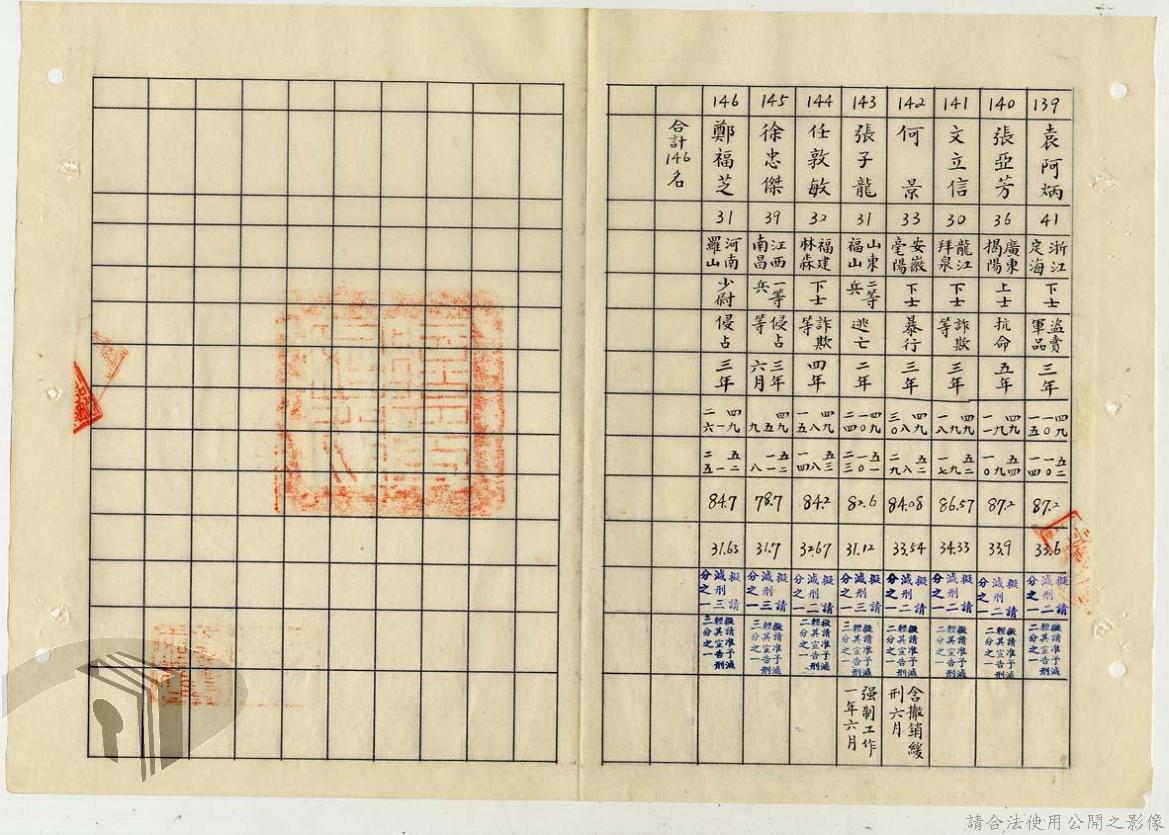 139
袁阿炳
41
浙江
定海
下士
盜賣
軍品
三年
四九
一〇
一五
五二
一〇
一四
87.2
33.6
擬請
減刑二
分之一
擬請准予減
輕其宣告刑
二分之一
140
張亞芳
36
廣東
揭陽
上士
抗命
五年
四九
九
一一
五四
九
一〇
87.2
33.9
擬請
減刑二
分之一
擬請准予減
輕其宣告刑
二分之一
141
文立信
30
龍江
拜泉
下士
詐欺
等
三年
四九
九
一八
五二
九
一七
86.57
34.33
擬請
減刑二
分之一
擬請准予減
輕其宣告刑
二分之一
142
何景
33
安徽
亳陽
下士
暴行
三年
四九
八
三〇
五二
八
二九
84.08
33.54
擬請
減刑二
分之一
擬請准予減
輕其宣告刑
二分之一
含撤銷緩
刑六月
143
張子龍
31
山東
福山
二等
兵
逃亡
二年
四九
一〇
二四
五一
一〇
二三
82.6
31.12
擬請
減刑三
分之一
擬請准予減
輕其宣告刑
三分之一
强制工作
一年六月
144
任敦敏
32
福建
林森
下士
詐欺
等
四年
四九
八
一五
五三
八
一四
84.2
32.67
擬請
減刑二
分之一
擬請准予減
輕其宣告刑
二分之一
145
徐忠傑
39
江西
南昌
一等
兵
侵占
等
三年
六月
四九
五
九
五二
一一
八
78.7
31.7
擬請
減刑三
分之一
擬請准予減
輕其宣告刑
三分之一
146
鄭福芝
31
河南
羅山
少尉
侵占
三年
四九
一
二六
五二
一
二五
84.7
31.63
擬請
減刑三
分之一
擬請准予減
輕其宣告刑
三分之一
合計146名
請合法使用公開之影像